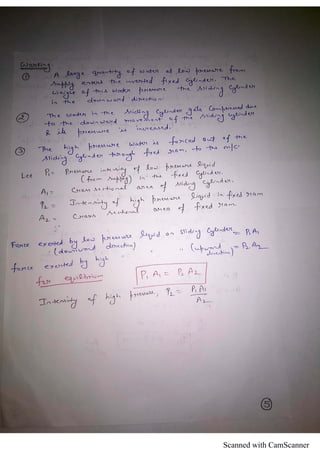 Working
① A large quantity of water at low pressure from
supply enters the inverted fixed cylinder. The
weight of this water pressure the sliding cylinder
in the downward direction.
② The water in the sliding cylinder gets compressed due
to the downward movement of the sliding cylinder
& its pressure is increased.
③ The high pressure water is forced out of the
sliding cylinder through fixed ram, to the m/c.
Let P₁ = Pressure intensity of low pressure liquid
(from supply) in the fixed cylinder.
A₁ = Cross sectional area of sliding cylinder.
P₂ = Intensity of high pressure liquid in fixed ram
A₂ = Cross sectional area of fixed ram.
Force exerted by low pressure liquid on sliding cylinder = P₁A₁
(downward direction)
force exerted by high " " " (upward direction) = P₂ A₂
for equilibrium P₁ A₁ = P₂ A₂
Intensity of high pressure, P₂ = P₁ A₁ / A₂
⑤
Scanned with CamScanner